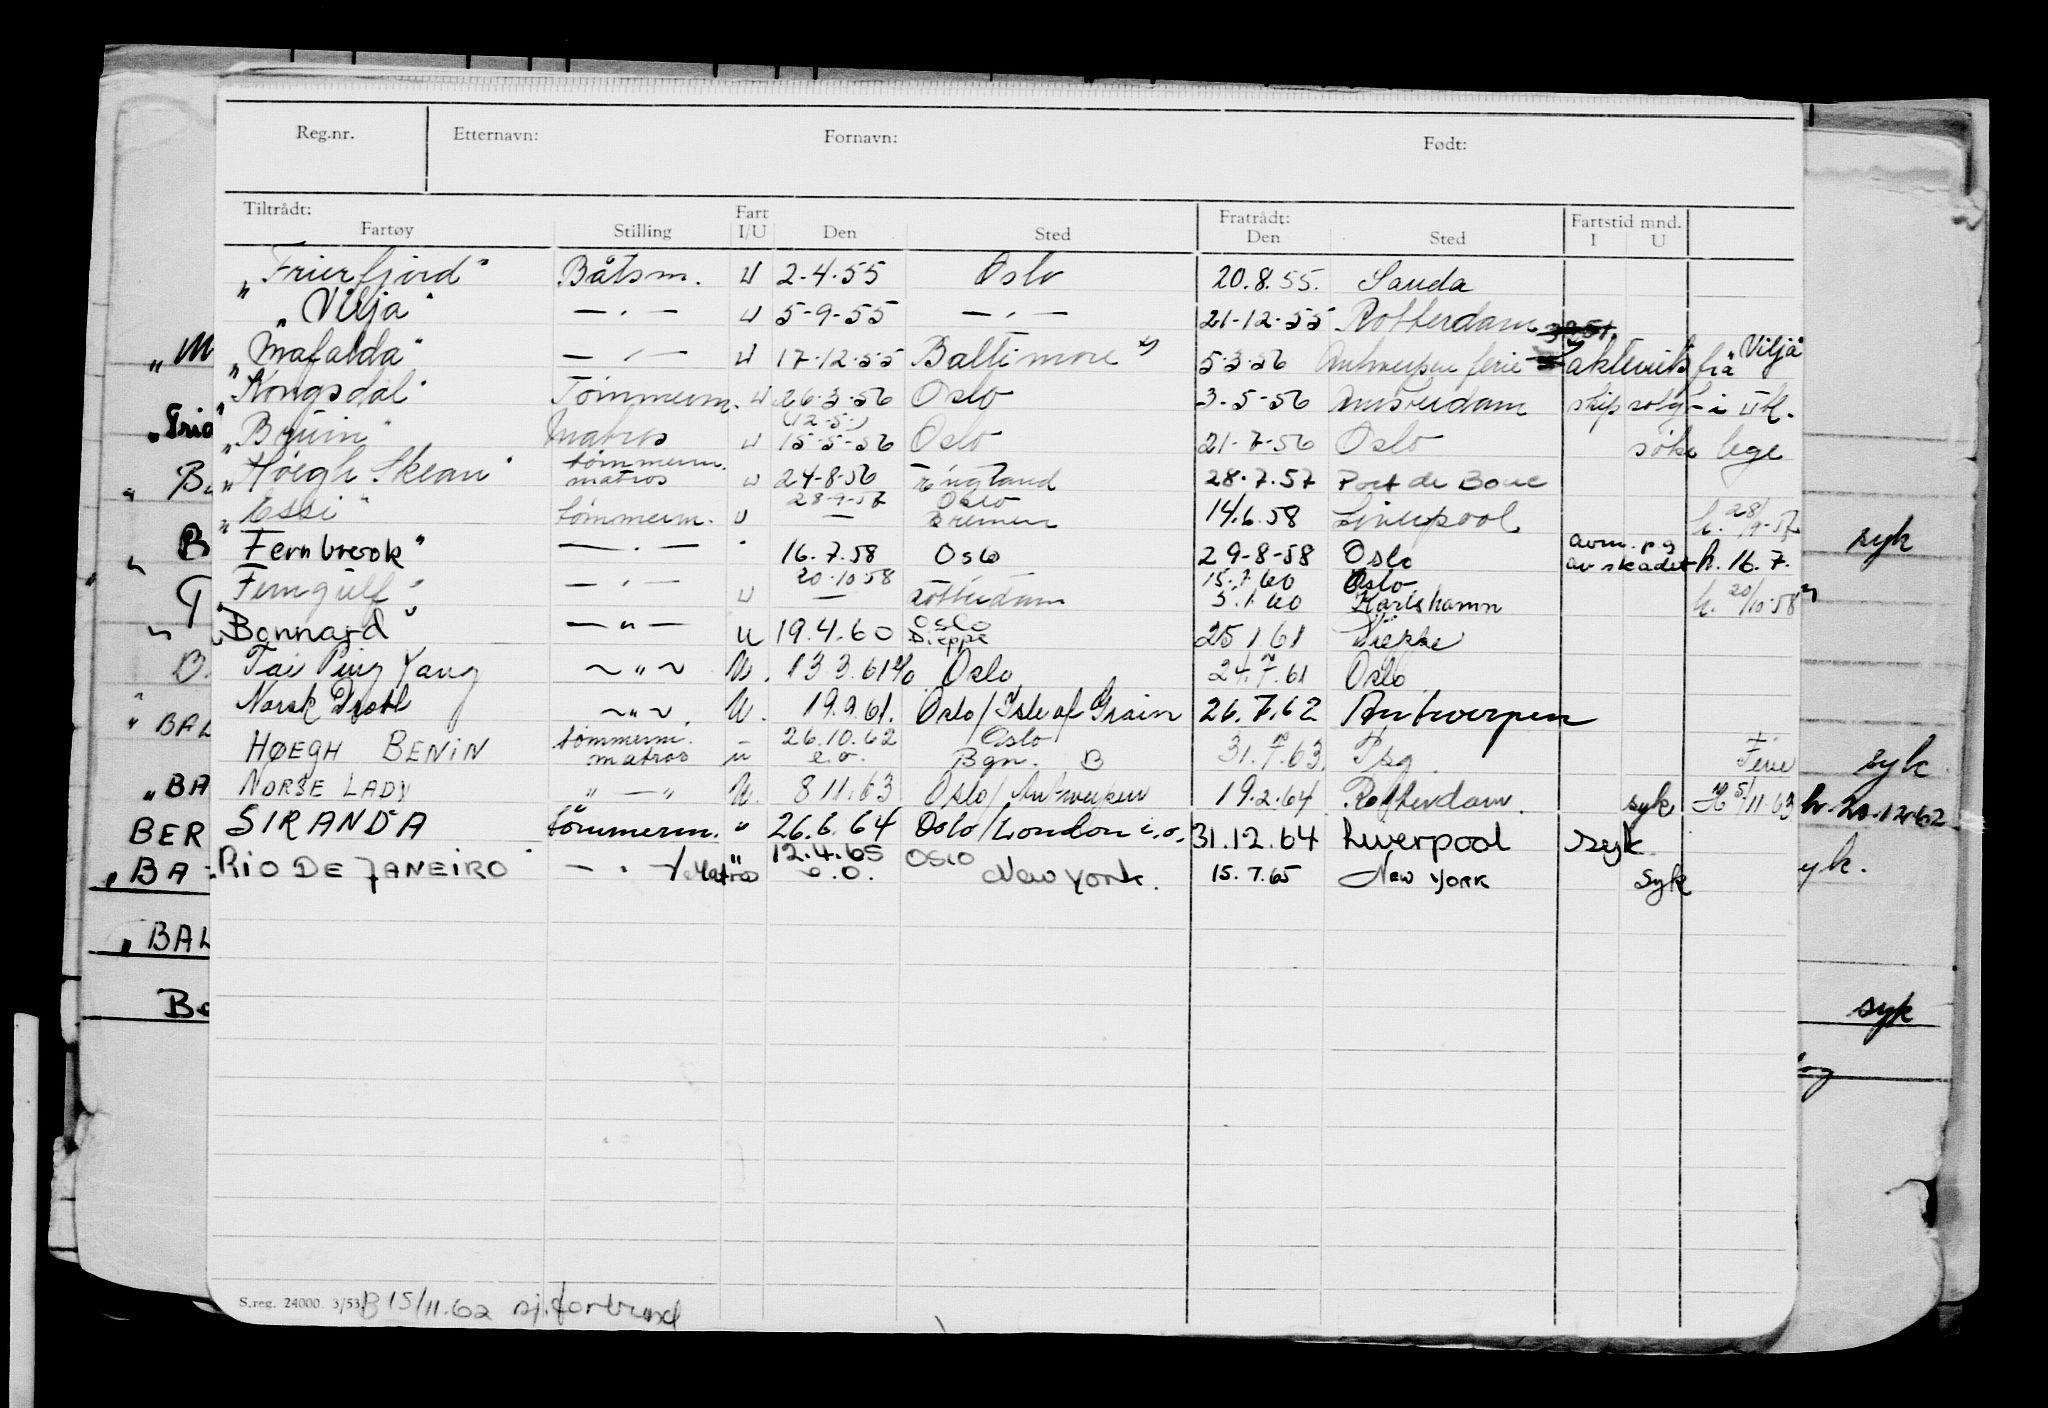 Reg.nr. Etternavn: Fornavn: Født:
Tiltrådt: Fratrådt: Fartstid mnd.
Fartøy Stilling Fart I/U Den Sted Den Sted I U
"Frierfjord" Båtsm. U 2-4-55 Oslo 20.8.55. Sauda
"Vilja" — . — U 5-9-55 — . — 21-12-55 Rotterdam
"Mafalda" — . — U 17-12-55 Baltimore x) 5-3-56 Antwerpen ferie x) aktevits fra "Vilja"
"Kongsdal" Tømmerm. U 26-3-56 Oslo 3-5-56 Amsterdam skip solgt i utl.
"Bruin" Matros U (12-5-) 15-5-56 Oslo 21-7-56 Oslo søke lege
"Høegh Skean" tømmerm. matros U 24-8-56 England 28.7.57 Port de Bouc
"Essi" tømmerm. U 28-9-57 — Oslo Bremen 14/6.58 Liverpool h. 28/9-57
"Fernbrook" — . — " 16.7.58 Oslo 29-8-58 Oslo avm. p g av skadet h. 16.7.
"Ferngulf" — . — U 20-10-58 — Rotterdam 15.1.60 Oslo 5.1.60 Karlshamn h. 20/10-58
"Bonnard" — " — U 19.4.60 Oslo Dieppe 25 1 61 Dieppe
Tai Ping Yang ~ " ~ U. 13.3.61 Oslo 24.7.61 Oslo
Norsk Drott ~ " ~ U. 19.9.61. Oslo/Isle of Grain 26.7.62 Antwerpen
HØEGH BENIN tømmerm. matros U 26.10.62 e.o. Oslo Bgn. B 31.7.63. Psg. Ferie
NORSE LADY " — " U. 8 11.63 Oslo/Antwerpen 19.2.64 Rotterdam. syk H 5/11.63
SIRANDA tømmerm. " 26.6.64 Oslo/London e.o. 31.12.64 Liverpool syk
RIO DE JANEIRO — . — / Matros " 12.4.65 e.o. OSLO New York. 15.7.65 NEW YORK Syk
S.reg. 24000. 3/53. B 15/11.62 sj.forbund
"M
B
BAL
"BA
BER
"BA
"BAL
syk
syk
h. 20.12.62
yk.
syk
og